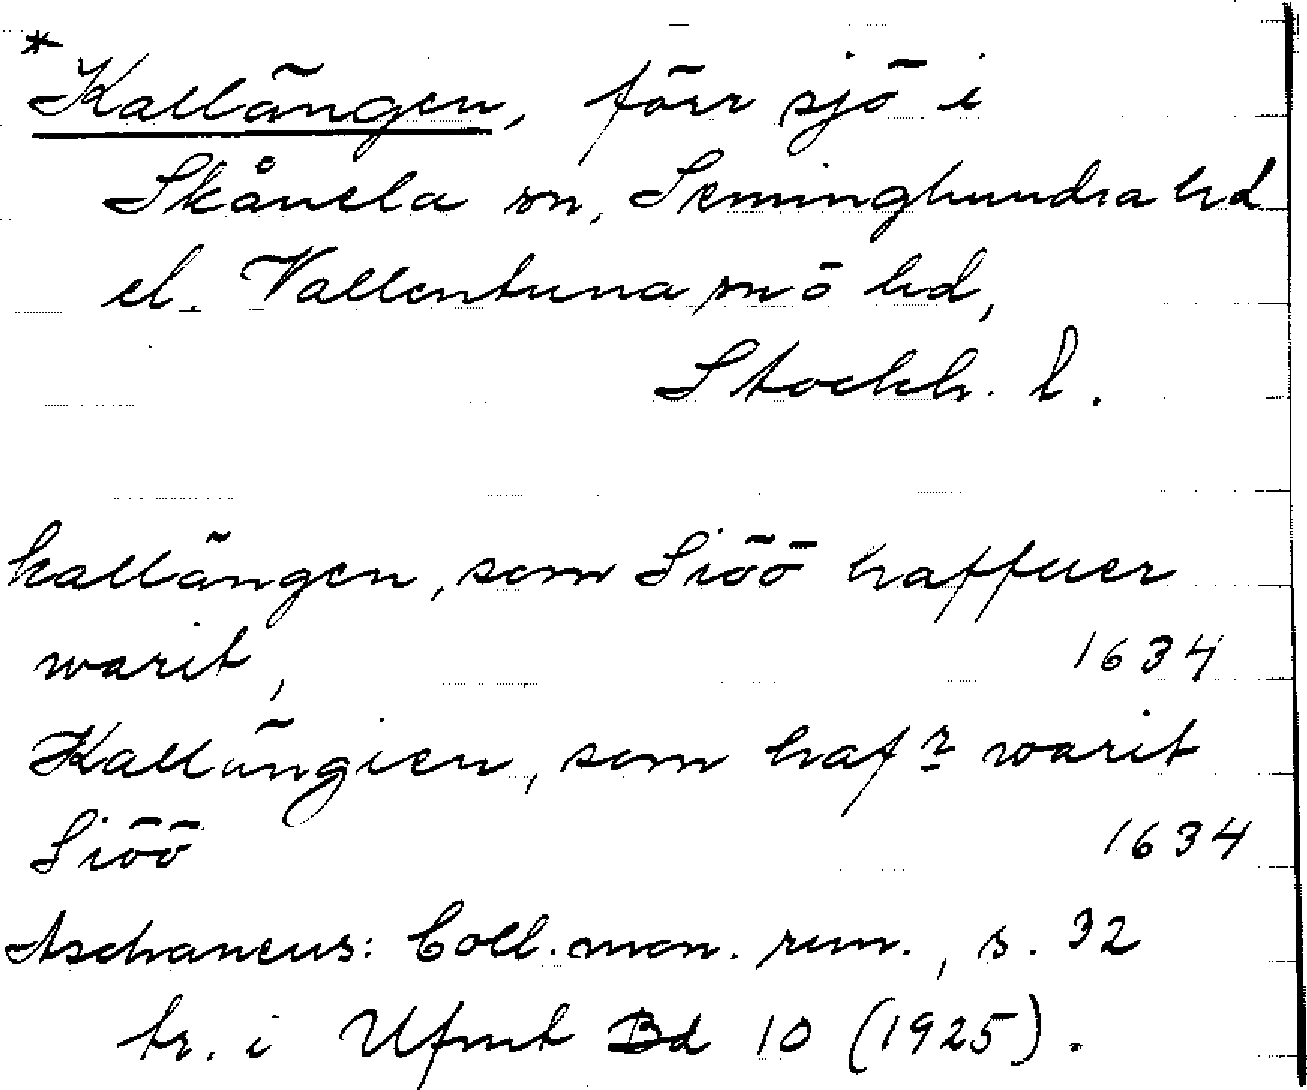 *Kallängen, förr sjö i
Skånela sn, Seminghundra hd
el. Vallentuna sn o hd,
Stockh. l.
kallängen, som Siöö haffuer
warit, 1634
Kallängien, som hafr warit
Siöö 1634
Aschaneus: Coll. mon. run., s. 32
tr. i Ufmt Bd 10 (1925).